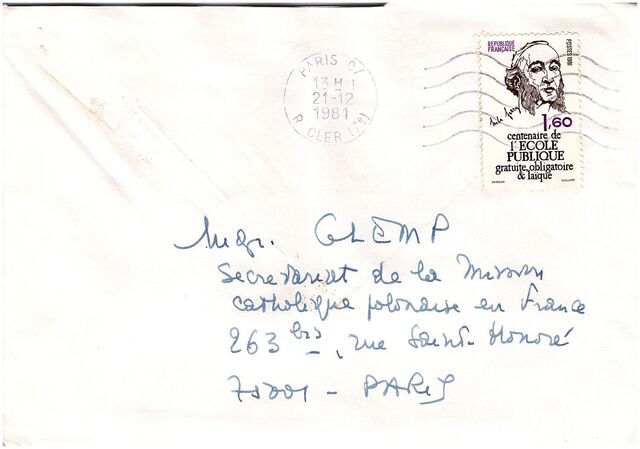 PARIS
13 H 1
21-12
1981
R. CLER (7e)
REPUBLIQUE
FRANÇAISE
POSTES 1981
1,60
centenaire de
l'ECOLE
PUBLIQUE
gratuite, obligatoire
& laïque
Mgr. GLEMP
Secretariat de la Mission
catholique polonaise en France
263 bis, rue Saint-Honoré
75001 - PARIS